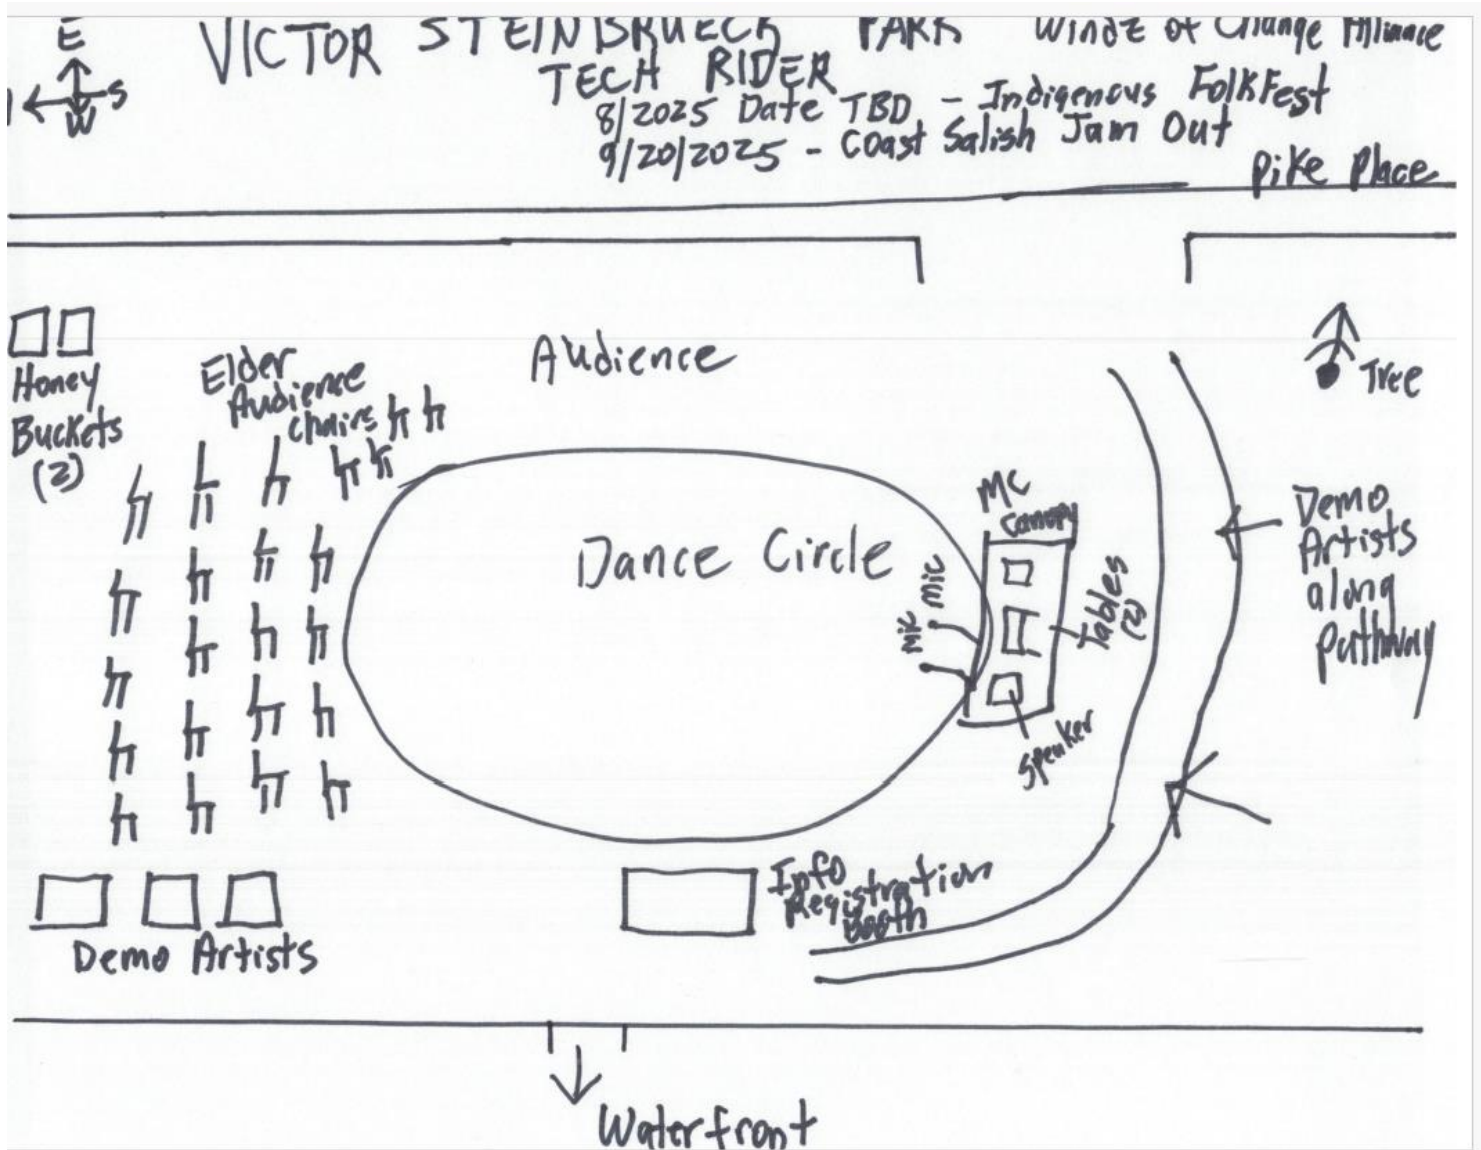 E
S
W
VICTOR STEINBRUECK PARK
Windz of Change Alliance
TECH RIDER
8/2025 Date TBD - Indigenous FolkFest
9/20/2025 - Coast Salish Jam Out
Pike Place
Honey
Buckets
(2)
Elder
Audience
chairs
Audience
Tree
Dance Circle
MC
Canopy
mic
mic
Tables
(2)
Speaker
Demo
Artists
along
pathway
Demo Artists
Info
Registration
Booth
Waterfront